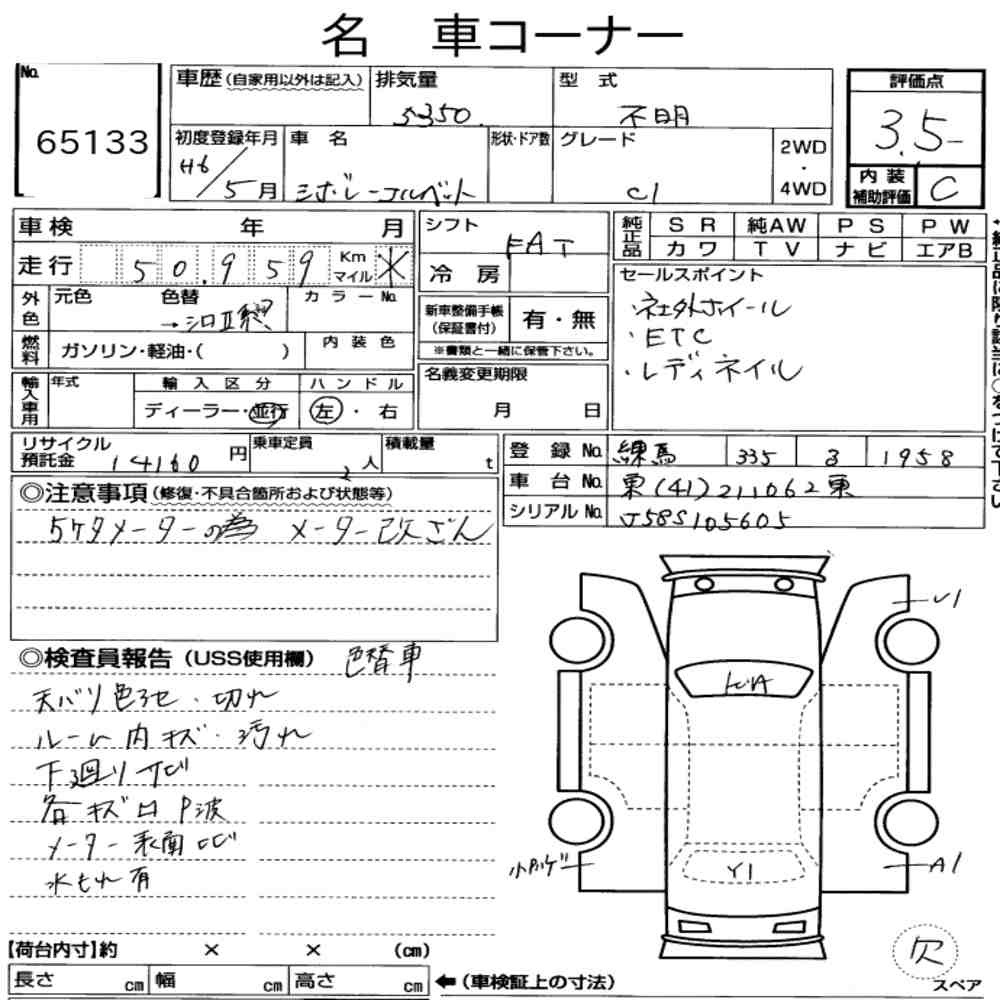 名 車コーナー
No.
65133
車歴 (自家用以外は記入)
排気量
5350
型 式
不明
評価点
3.5
初度登録年月
H6/5月
車 名
シボレーコルベット
形状・ドア数
グレード
C1
2WD
・
4WD
内 装
補助評価
C
車検 年 月
シフト
FAT
純正品
SR 純AW PS PW
カワ TV ナビ エアB
走行 50,959 Km マイル
冷 房
セールスポイント
・社外ホイール
・ETC
・レディネイル
外色
元色 色替 カラーNo.
→シロⅡ
新車整備手帳
(保証書付)
有・無
※書類と一緒に保管下さい。
燃料
ガソリン・軽油・( )
内 装 色
名義変更期限
月 日
輸入車用
年式
輸 入 区 分
ハ ン ド ル
ディーラー・並行
左・右
リサイクル
預託金
14160 円
乗車定員
2人
積載量
t
登 録 No. 練馬 335 3 1958
車 台 No. 東(41)211062東
シリアル No. J58S105605
◎注意事項 (修復・不具合箇所および状態等)
5ケタメーターの為 メーター改ざん
◎検査員報告 (USS使用欄) 色替車
天バリ色ヤセ・切れ
ルーム内キズ・汚れ
下廻りサビ
各キズ凹P波
メーター表面ヒビ
水もれ有
U1
ヒビA
小Pハゲ
Y1
A1
欠
スペア
【荷台内寸】約 × × (cm)
長さ cm 幅 cm 高さ cm
←(車検証上の寸法)